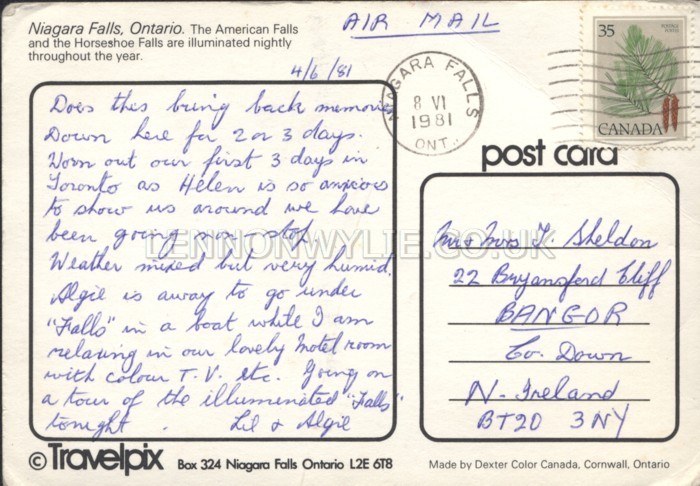 Niagara Falls, Ontario. The American Falls
and the Horseshoe Falls are illuminated nightly
throughout the year.
AIR MAIL
4/6/81
NIAGARA FALLS
8 VI
1981
ONT.
35
POSTAGE
POSTES
CANADA
Does this bring back memories
Down here for 2 or 3 days.
Worn out our first 3 days in
Toronto as Helen is so anxious
to show us around we have
been going non-stop.
Weather mixed but very humid.
Algie is away to go under
"Falls" in a boat while I am
relaxing in our lovely motel room
with colour T.V. etc. Going on
a tour of the illuminated "Falls"
tonight. Lil & Algie
post card
Mr & Mrs T. Sheldon
22 Bryansford Cliff
BANGOR
Co. Down
N-Ireland
BT20 3NY
LENNONWYLIE.CO.UK
© Travelpix Box 324 Niagara Falls Ontario L2E 6T8
Made by Dexter Color Canada, Cornwall, Ontario